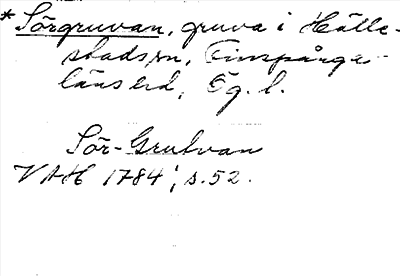 * Sörgruvan, gruva i Hälle-
stads sn, Finspånga-
läns hd, Ög. l.
Sör-Grufvan
VAH 1784, s. 52.